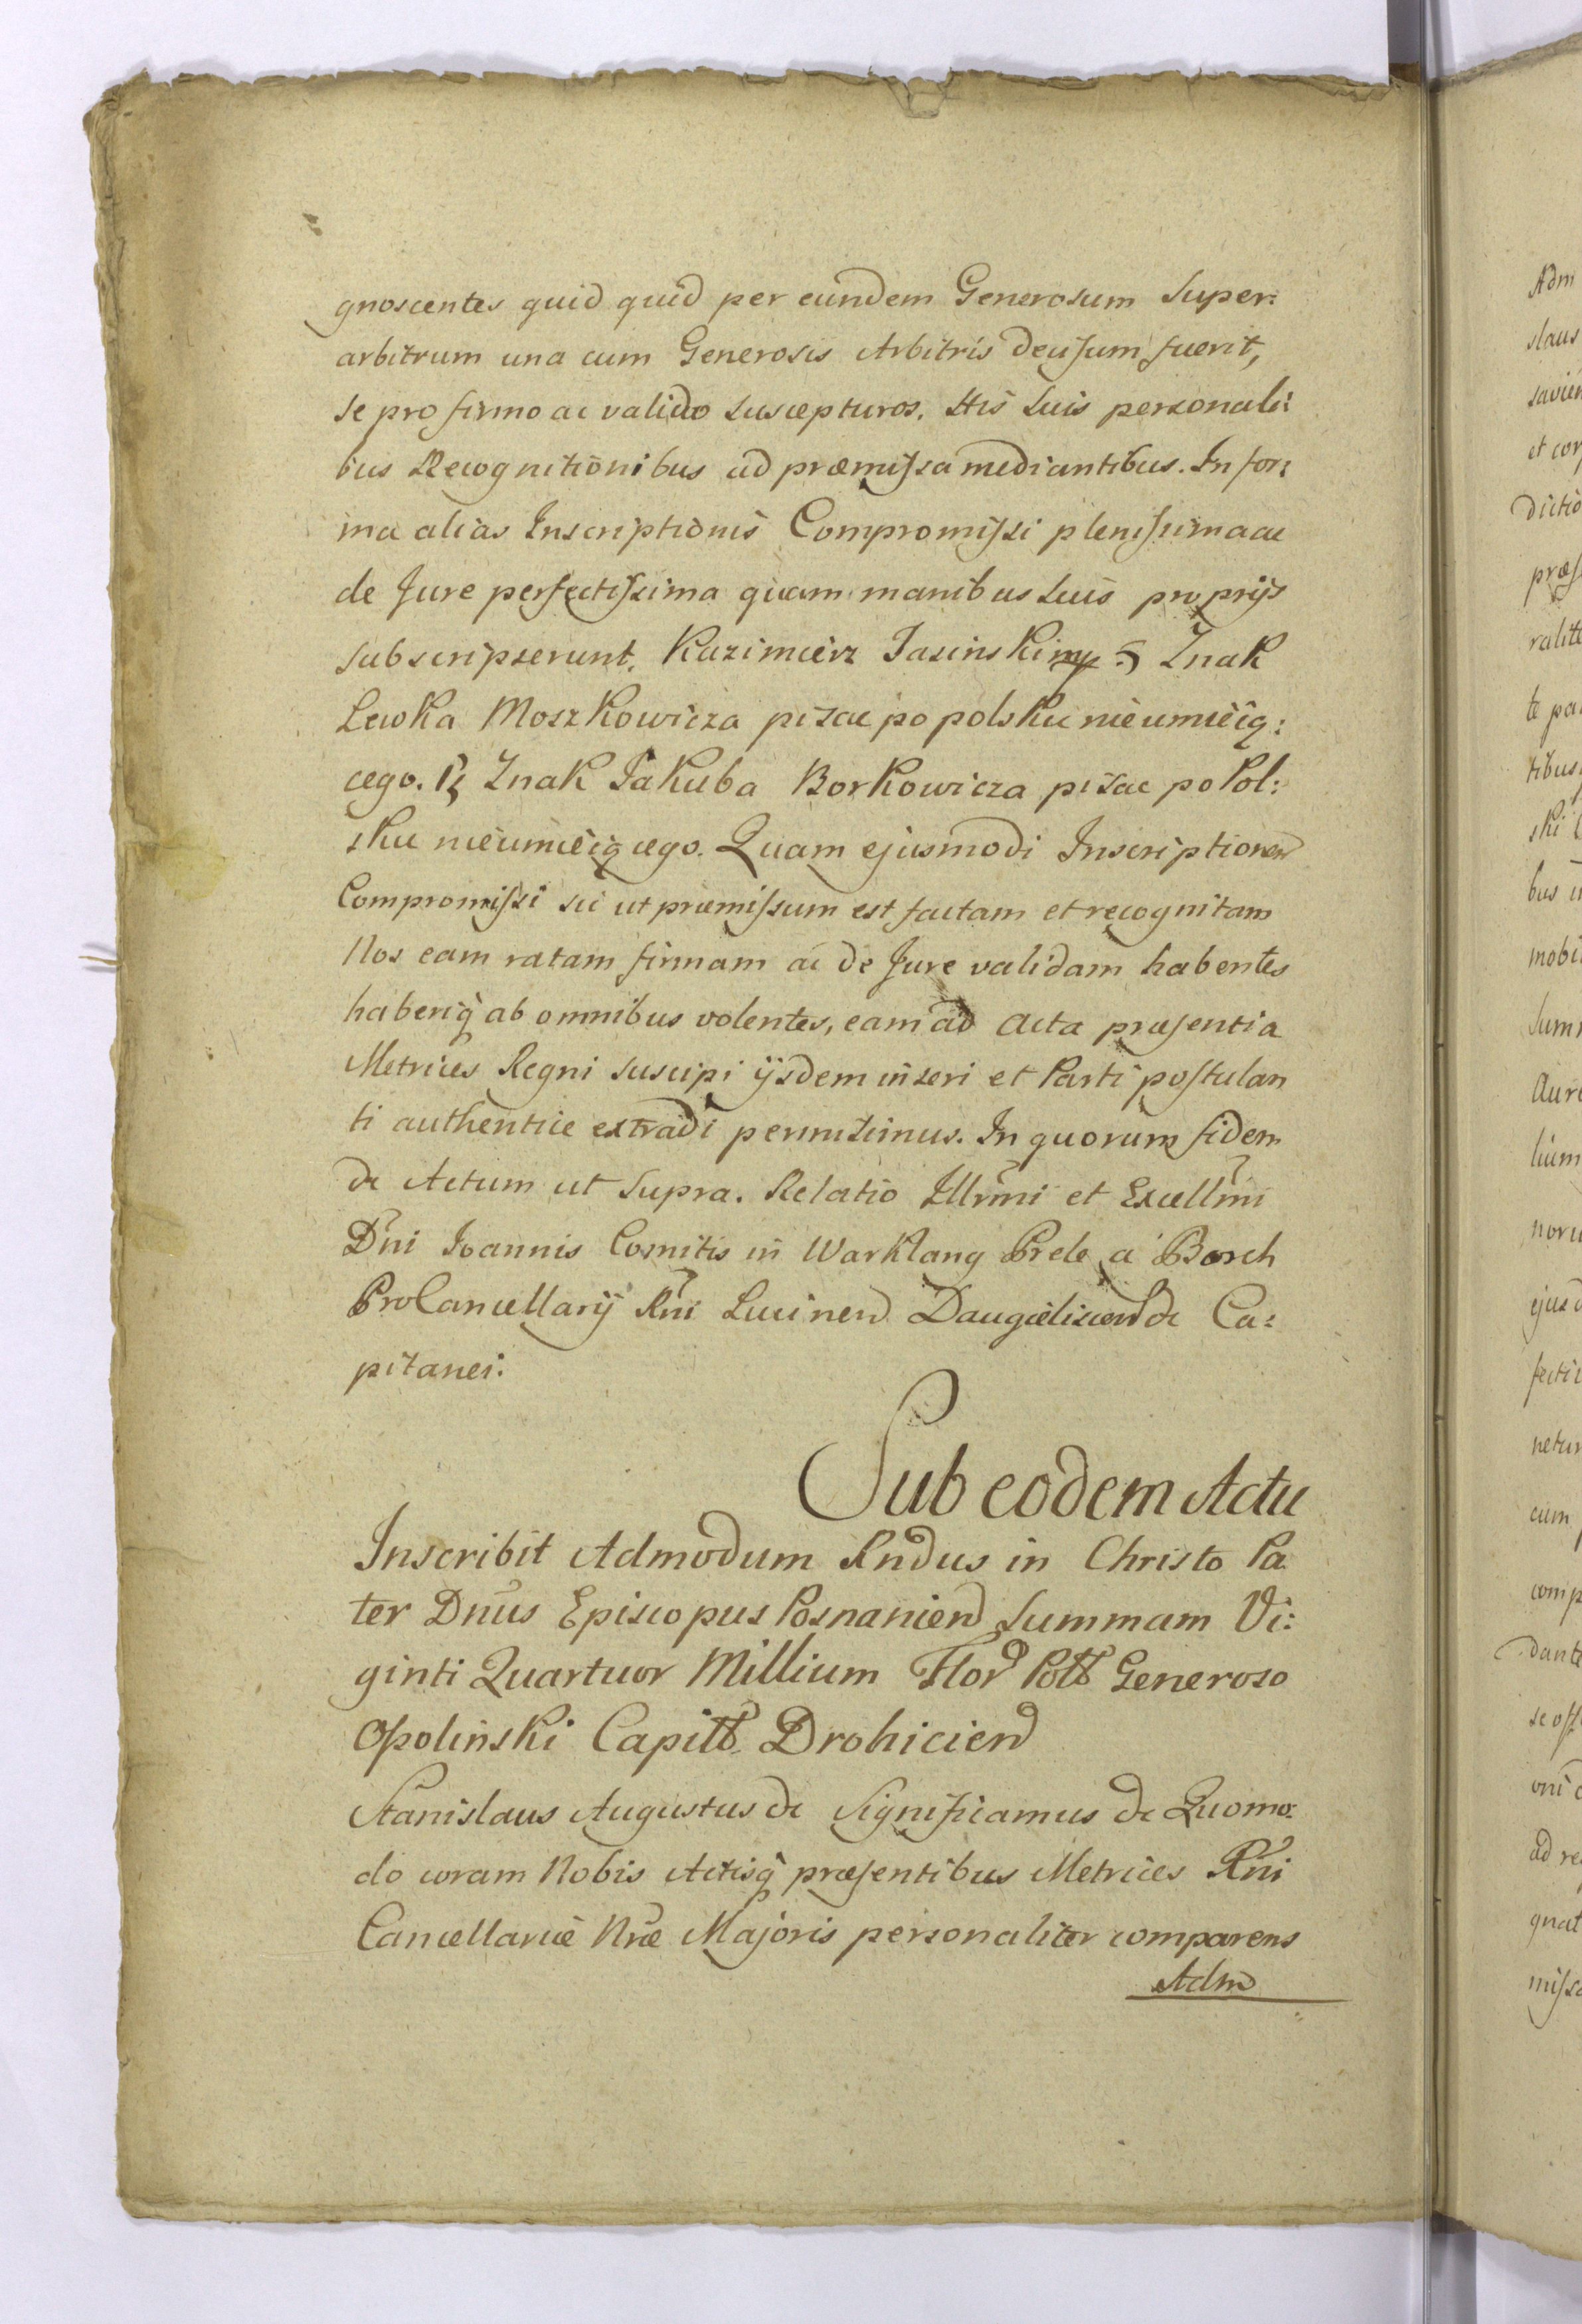 gnoscentes quid quid per eundem Generosum Super:
arbitrum una cum Generosis Arbitris decisum fuerit,
se pro firmo ac valido suscepturos. His suis personali:
bus Recognitionibus ad præmissa mediantibus. In for:
ma alias Inscriptionis Compromissi plenissima ac
de Jure perfectissima quam manibus suis proprijs
subscripserunt. Kazimierz Jasinski mp Znak
Lewka Moszkowicza pisac po polsku nieumieią:
cego. Znak Jakuba Borkowicza pisac po Pol:
sku nieumieiącego. Quam ejusmodi Inscriptionem
Compromissi sic ut præmissum est factam et recognitam
Nos eam ratam firmam ac de Jure validam habentes
haberiq̃ ab omnibus volentes, eam ad Acta præsentia
Metrices Regni suscipi ijsdem inseri et Parti postulan
ti authentice extradi permisimus. In quorum fidem
&c Actum ut supra. Relatio Illr̃mi et Excellm̃i
Dñi Joannis Comitis in Warklang Prele a Borch
ProCancellarij Rñi Lucinen Daugieliscen &c Ca:
pitanei.
Sub eodem Actu
Inscribit Admodum Rndus in Christo Pa
ter Dñus Episcopus Posnanien Summam Vi:
ginti Quartuor Millium Flor Poll Generoso
Opolinski Capitt. Drohicien
Stanislaus Augustus &c Significamus &c Quomo:
do coram Nobis Actisq̃ præsentibus Metrices Rñi
Cancellariæ Nr̃æ Majoris personaliter comparens
Adm